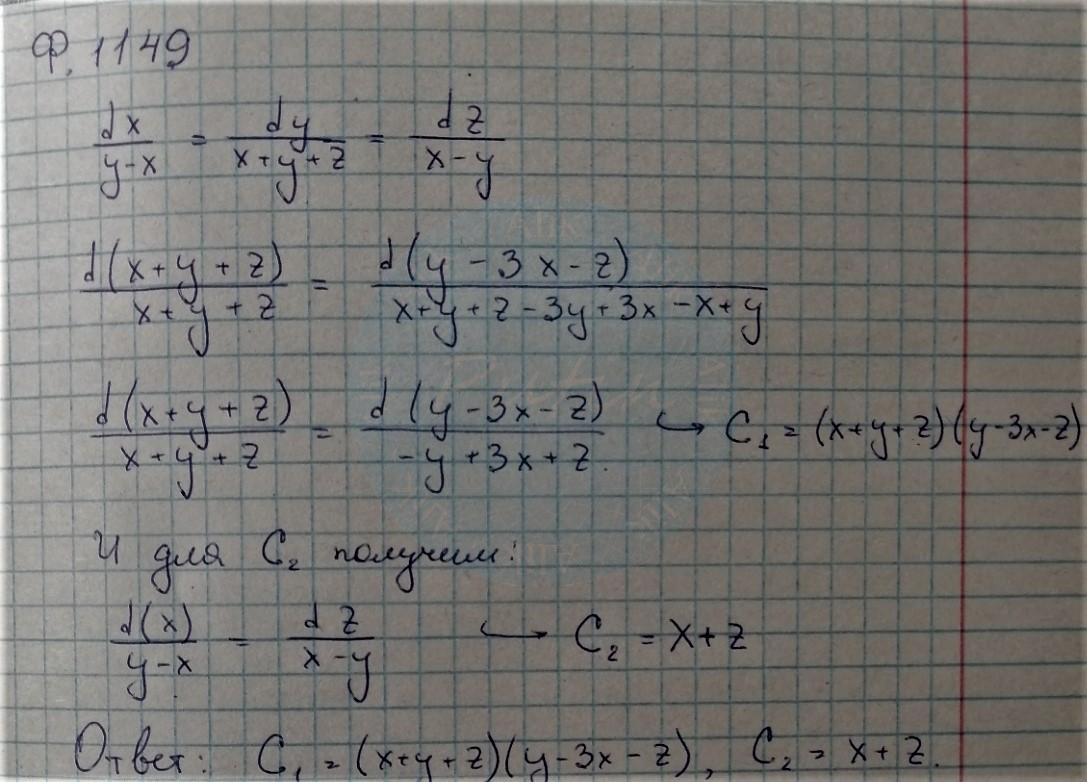 Ф. 1149
dx/(y-x) = dy/(x+y+z) = dz/(x-y)
d(x+y+z)/(x+y+z) = d(y-3x-z)/(x+y+z-3y+3x-x+y)
d(x+y+z)/(x+y+z) = d(y-3x-z)/(-y+3x+z) ↪ C₁ = (x+y+z)(y-3x-z)
И для C₂ получим:
d(x)/(y-x) = dz/(x-y) ↪ C₂ = x+z
Ответ: C₁ = (x+y+z)(y-3x-z), C₂ = x+z.